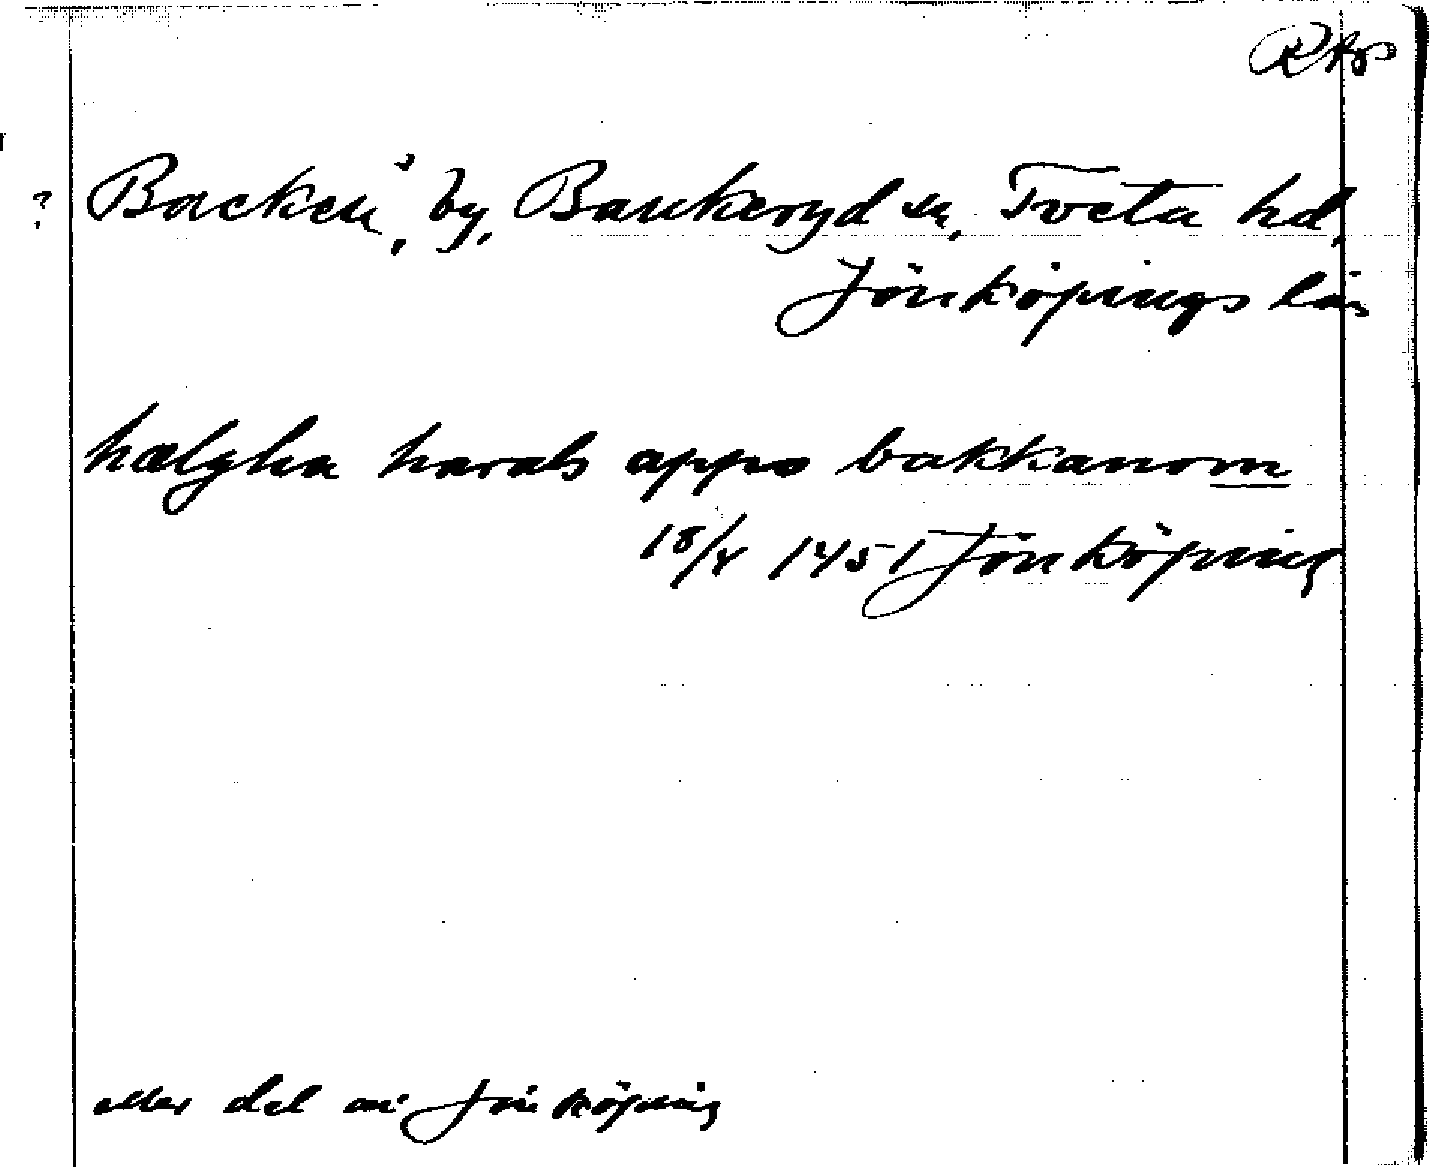 RAp
? Backen, by, Bankeryd sn, Tveta hd,
Jönköpings län
hælgha harals appo bakkanom
18/4 1451 Jönköping
eller del av Jönköping